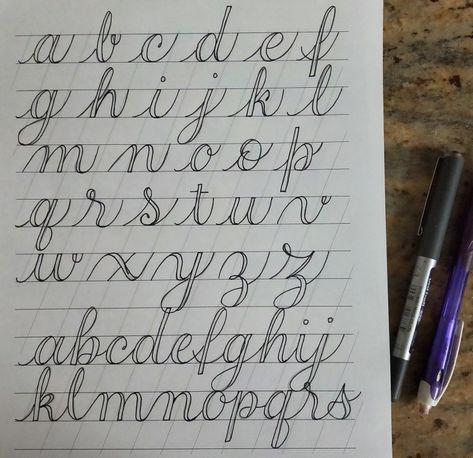 a b c d e f
g h i j k l
m n o o p
q r s t u v
w x y z z
abcdefghij
klmnopqrs